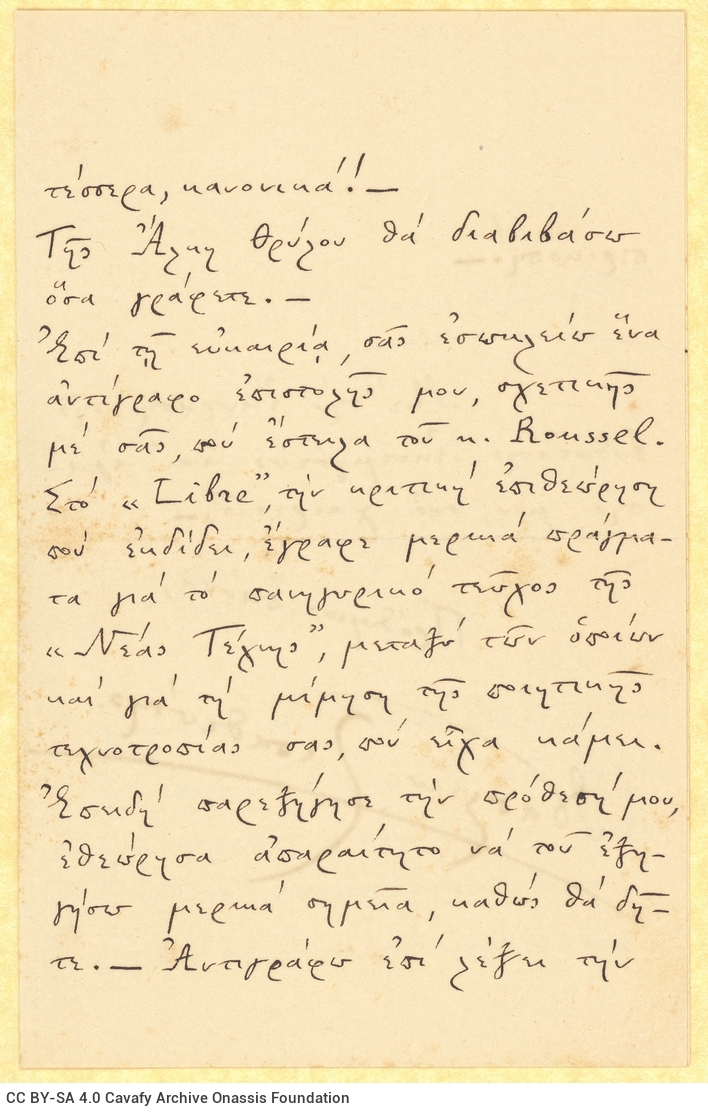 τέσσερα, κανονικά!! —
Τῆς Ἄλκη Θρύλου θά διαβιβάσω
ὅσα γράφετε. —
Ἐπί τῇ εὐκαιρίᾳ, σᾶς ἐσωκλείω ἕνα
ἀντίγραφο ἐπιστολῆς μου, σχετικῆς
μέ σᾶς, πού ἔστειλα τοῦ κ. Roussel.
Στό «Libre”, τήν κριτική ἐπιθεώρηση
πού ἐκδίδει, ἔγραφε μερικά πράγμα-
τα γιά τό πανηγυρικό τεῦχος τῆς
«Νέας Τέχνης”, μεταξύ τῶν ὁποίων
καί γιά τή μίμηση τῆς ποιητικῆς
τεχνοτροπίας σας, πού εἶχα κάμει.
Ἐπειδή παρεξήγησε τήν πρόθεσή μου,
ἐθεώρησα ἀπαραίτητο νά τοῦ ἐξη-
γήσω μερικά σημεῖα, καθώς θά δῆ-
τε. — Ἀντιγράφω ἐπί λέξει τήν
CC BY-SA 4.0 Cavafy Archive Onassis Foundation